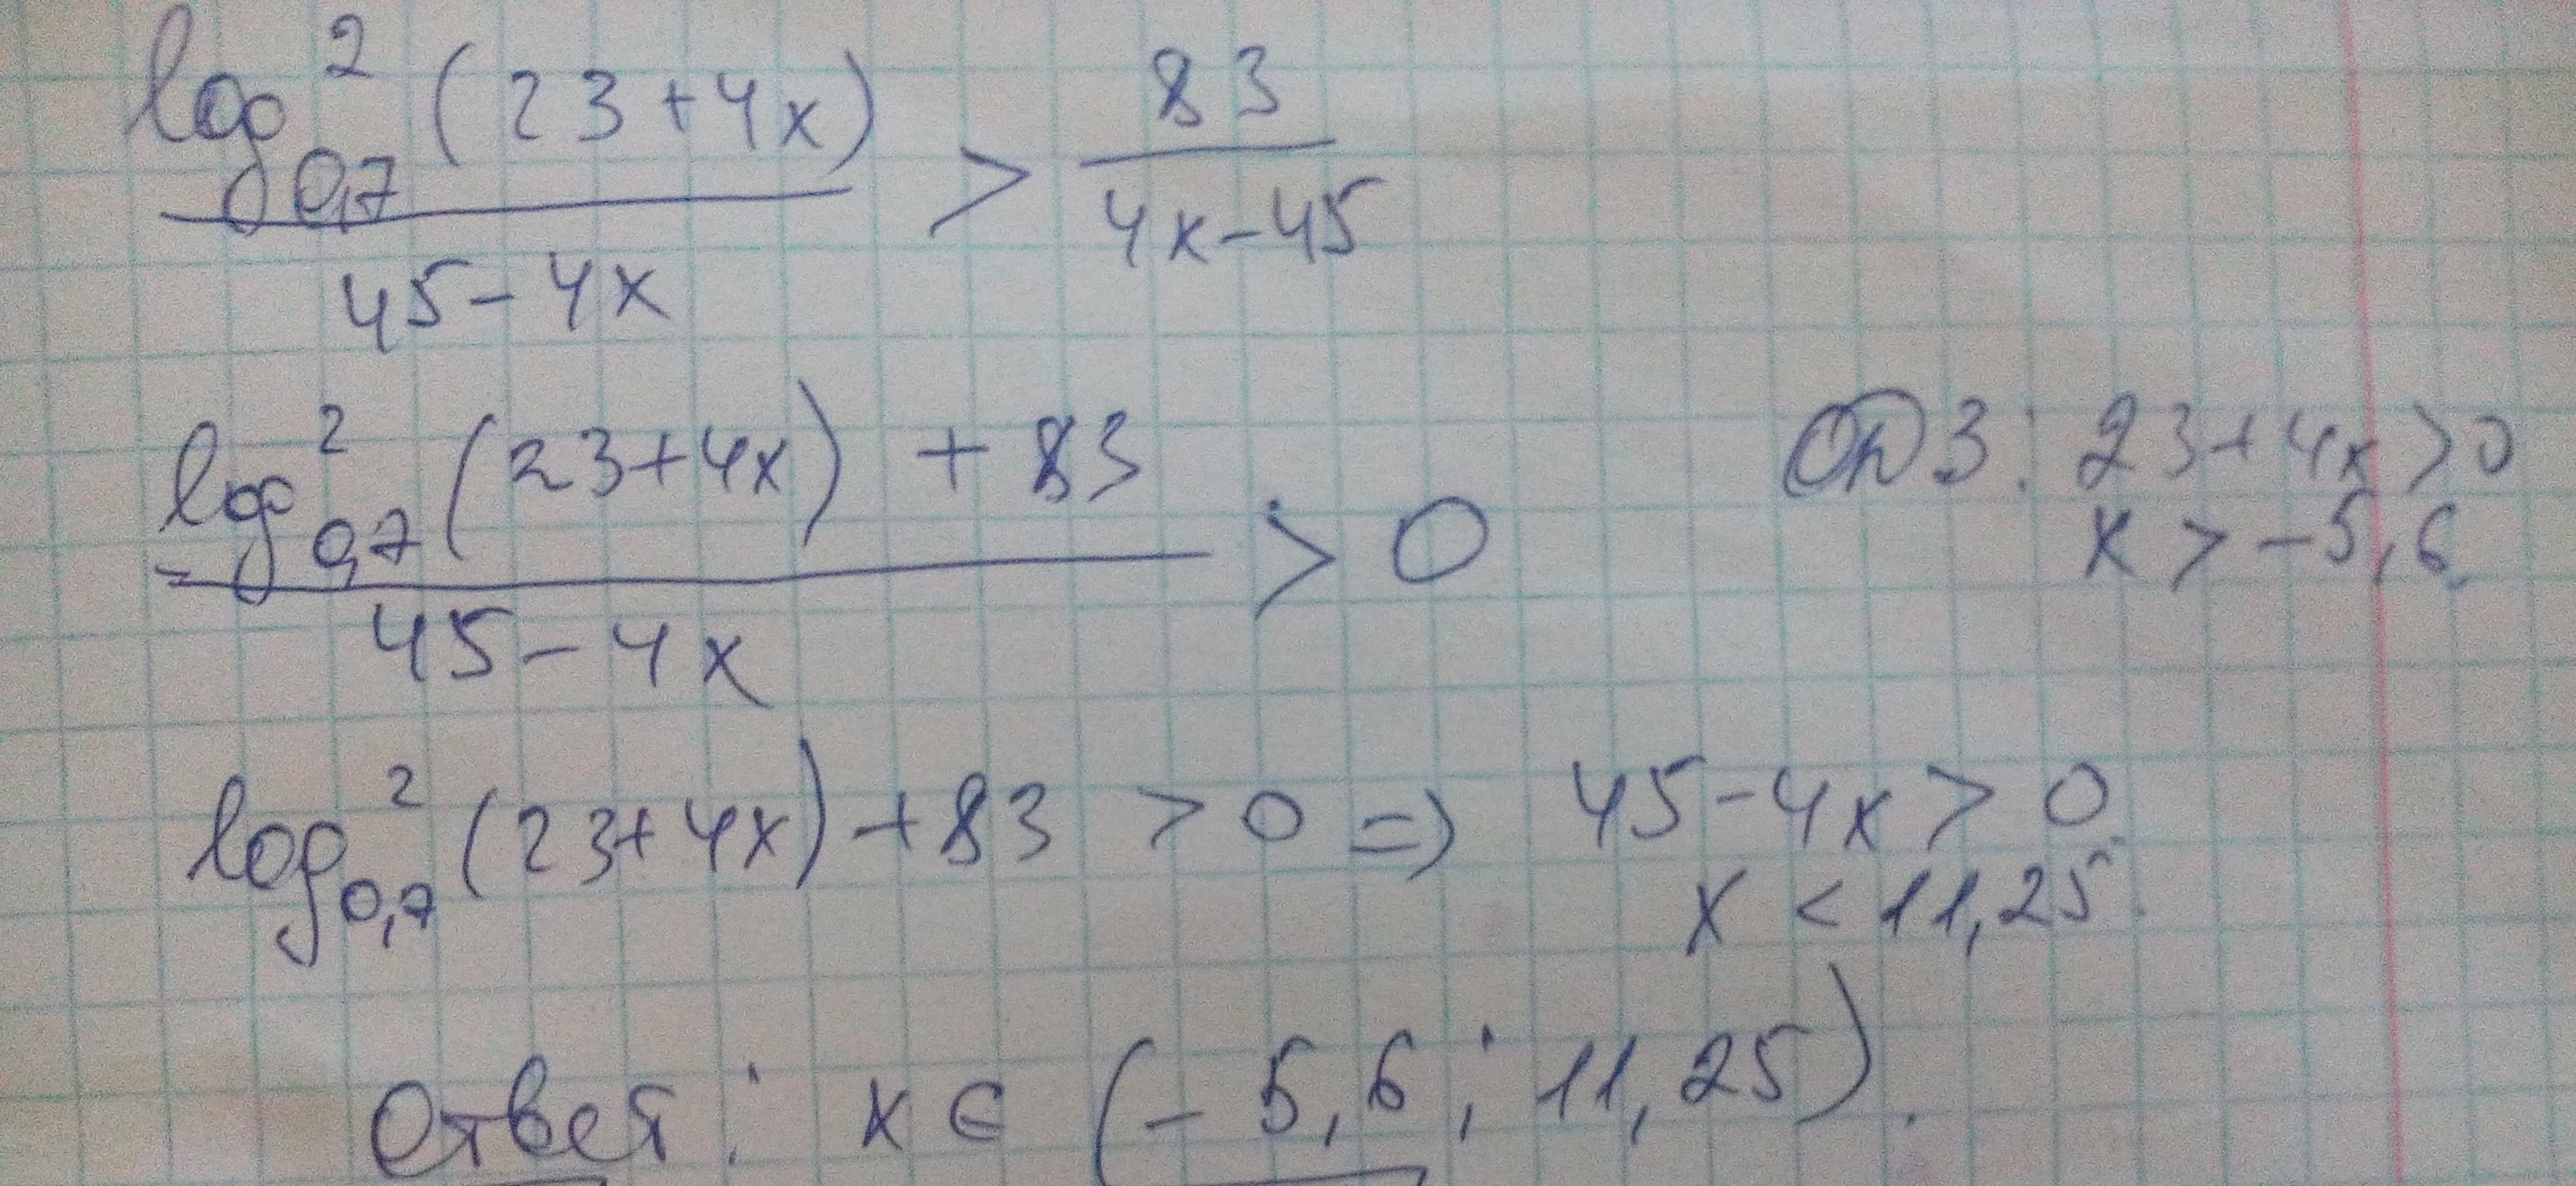 log²₀,₇(23+4x)/(45-4x) > 83/(4x-45)
log²₀,₇(23+4x) + 83/(45-4x) > 0
ОДЗ: 23+4x>0
x > -5,6.
log²₀,₇(23+4x)+83 > 0 => 45-4x > 0
x < 11,25.
Ответ: x ∈ (-5,6; 11,25).